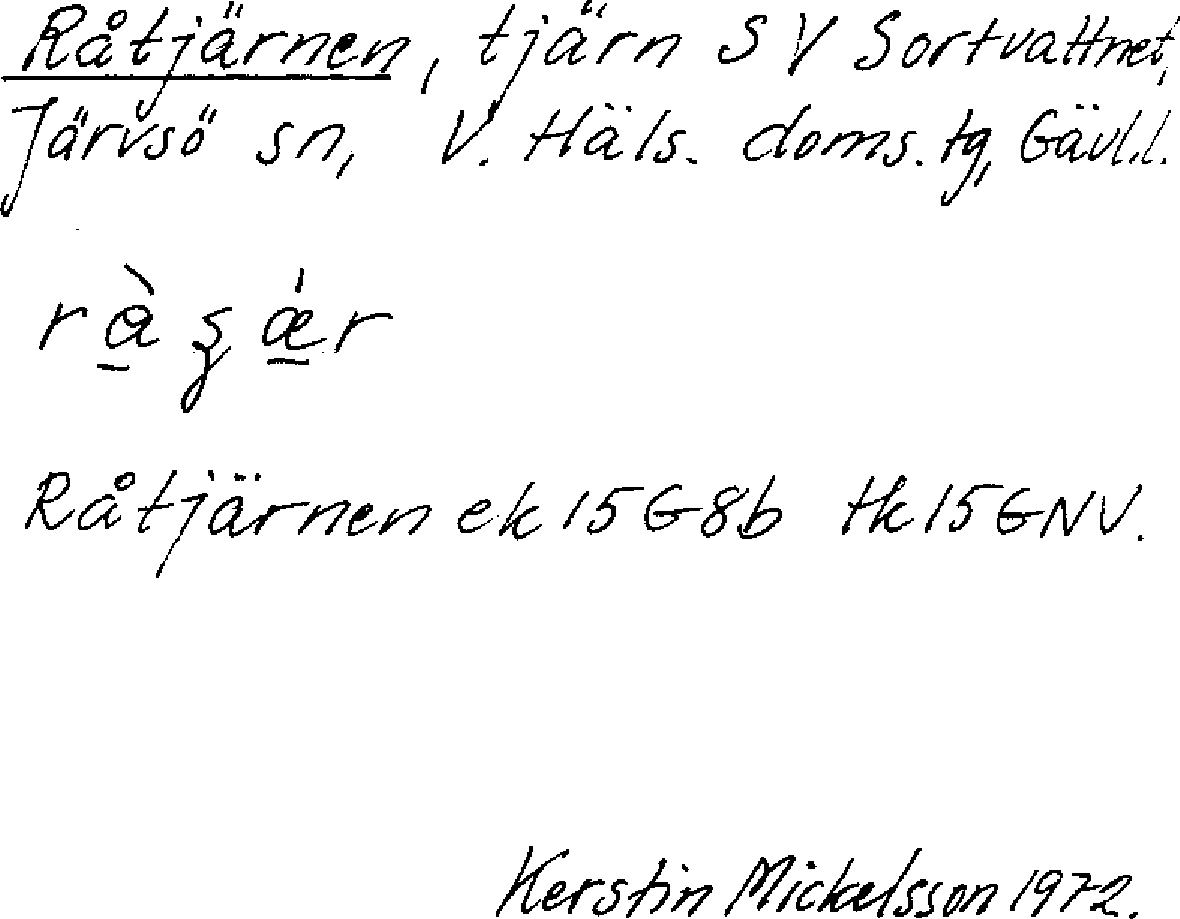 Råtjärnen, tjärn SV Sortvattnet,
Järvsö sn, V. Häls. doms. tg, Gävl.l.
Råtjärnen ek 15G8b tk15GNV.
Kerstin Mickelsson 1972.